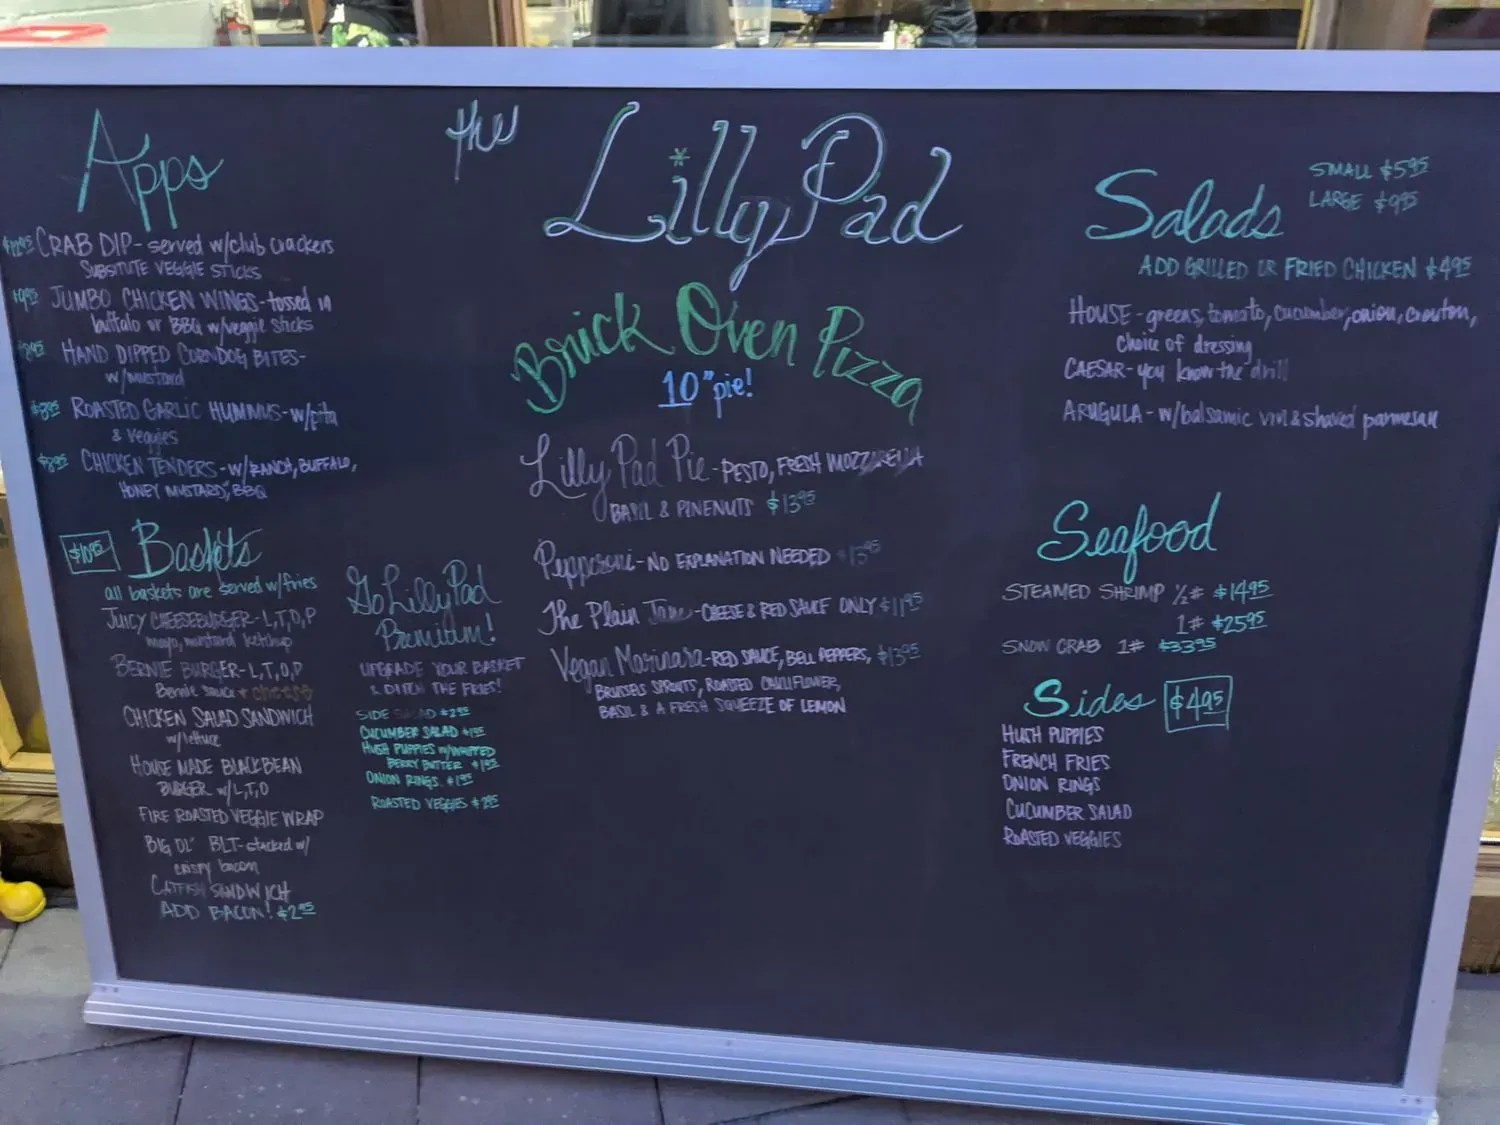 the Lilly Pad
Brick Oven Pizza
10" pie!
Lilly Pad Pie - PESTO, FRESH MOZZARELLA
BASIL & PINENUTS $13.95
Pepperoni - NO EXPLANATION NEEDED $13.95
The Plain Jane - CHEESE & RED SAUCE ONLY $11.95
Vegan Marinara - RED SAUCE, BELL PEPPERS, $13.95
BRUSSELS SPROUTS, ROASTED CAULIFLOWER,
BASIL & A FRESH SQUEEZE OF LEMON
Apps
$12.95 CRAB DIP - served w/club crackers
SUBSITUTE VEGGIE STICKS
$9.95 JUMBO CHICKEN WINGS - tossed in
buffalo or BBQ w/veggie sticks
HAND DIPPED CORNDOG BITES -
w/mustard
$8.95 ROASTED GARLIC HUMMUS - w/pita
& veggies
$8.95 CHICKEN TENDERS - w/RANCH, BUFFALO,
HONEY MUSTARD, BBQ
$10.95 Baskets
all baskets are served w/fries
JUICY CHEESEBURGER - L,T,O,P
mayo, mustard, ketchup
BERNIE BURGER - L,T,O,P
Bernie sauce + cheese
CHICKEN SALAD SANDWICH
w/lettuce
HOUSE MADE BLACKBEAN
BURGER w/L,T,O
FIRE ROASTED VEGGIE WRAP
BIG OL' BLT - stacked w/
crispy bacon
CATFISH SANDWICH
ADD BACON! $2.95
Go LillyPad
Premium!
UPGRADE YOUR BASKET
& DITCH THE FRIES!
SIDE SALAD $2.95
CUCUMBER SALAD $1.95
HUSH PUPPIES w/WHIPPED
BERRY BUTTER $1.95
ONION RINGS $1.95
ROASTED VEGGIES $2.95
Salads
SMALL $5.95
LARGE $9.95
ADD GRILLED OR FRIED CHICKEN $4.95
HOUSE - greens, tomato, cucumber, onion, crouton,
choice of dressing
CAESAR - you know the drill
ARUGULA - w/balsamic vin & shaved parmesan
Seafood
STEAMED SHRIMP ½# $14.95
1# $25.95
SNOW CRAB 1# $33.95
Sides $4.95
HUSH PUPPIES
FRENCH FRIES
ONION RINGS
CUCUMBER SALAD
ROASTED VEGGIES